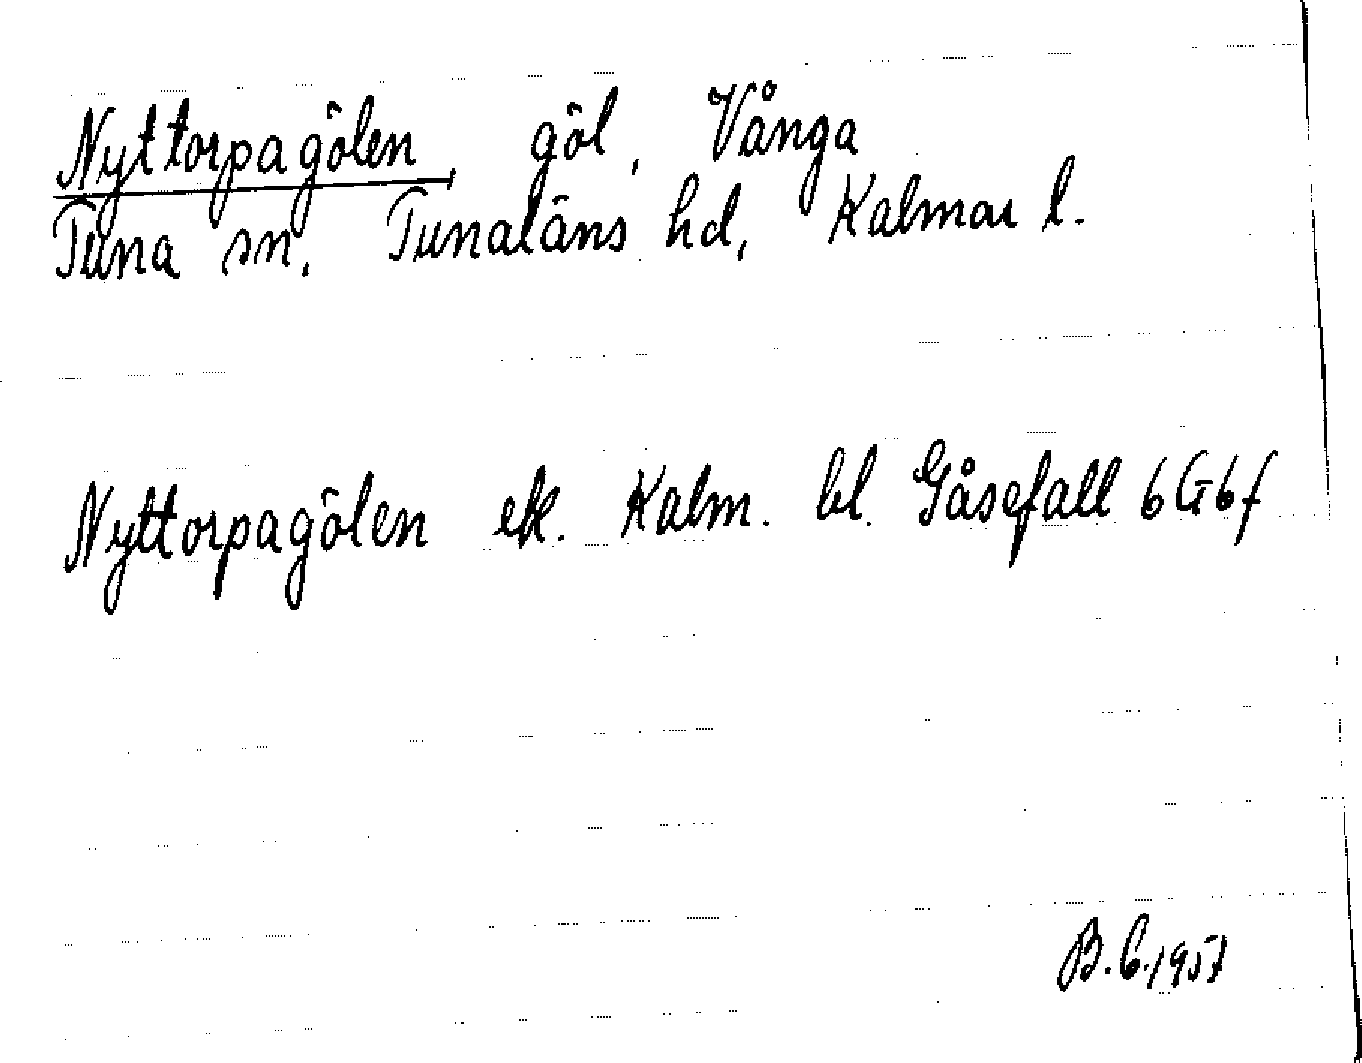 Nyttorpagölen, göl, Vånga
Tuna sn, Tunaläns hd, Kalmar l.
Nyttorpagölen ek. Kalm. bl. Gåsefall 6G6f
B.C.1957